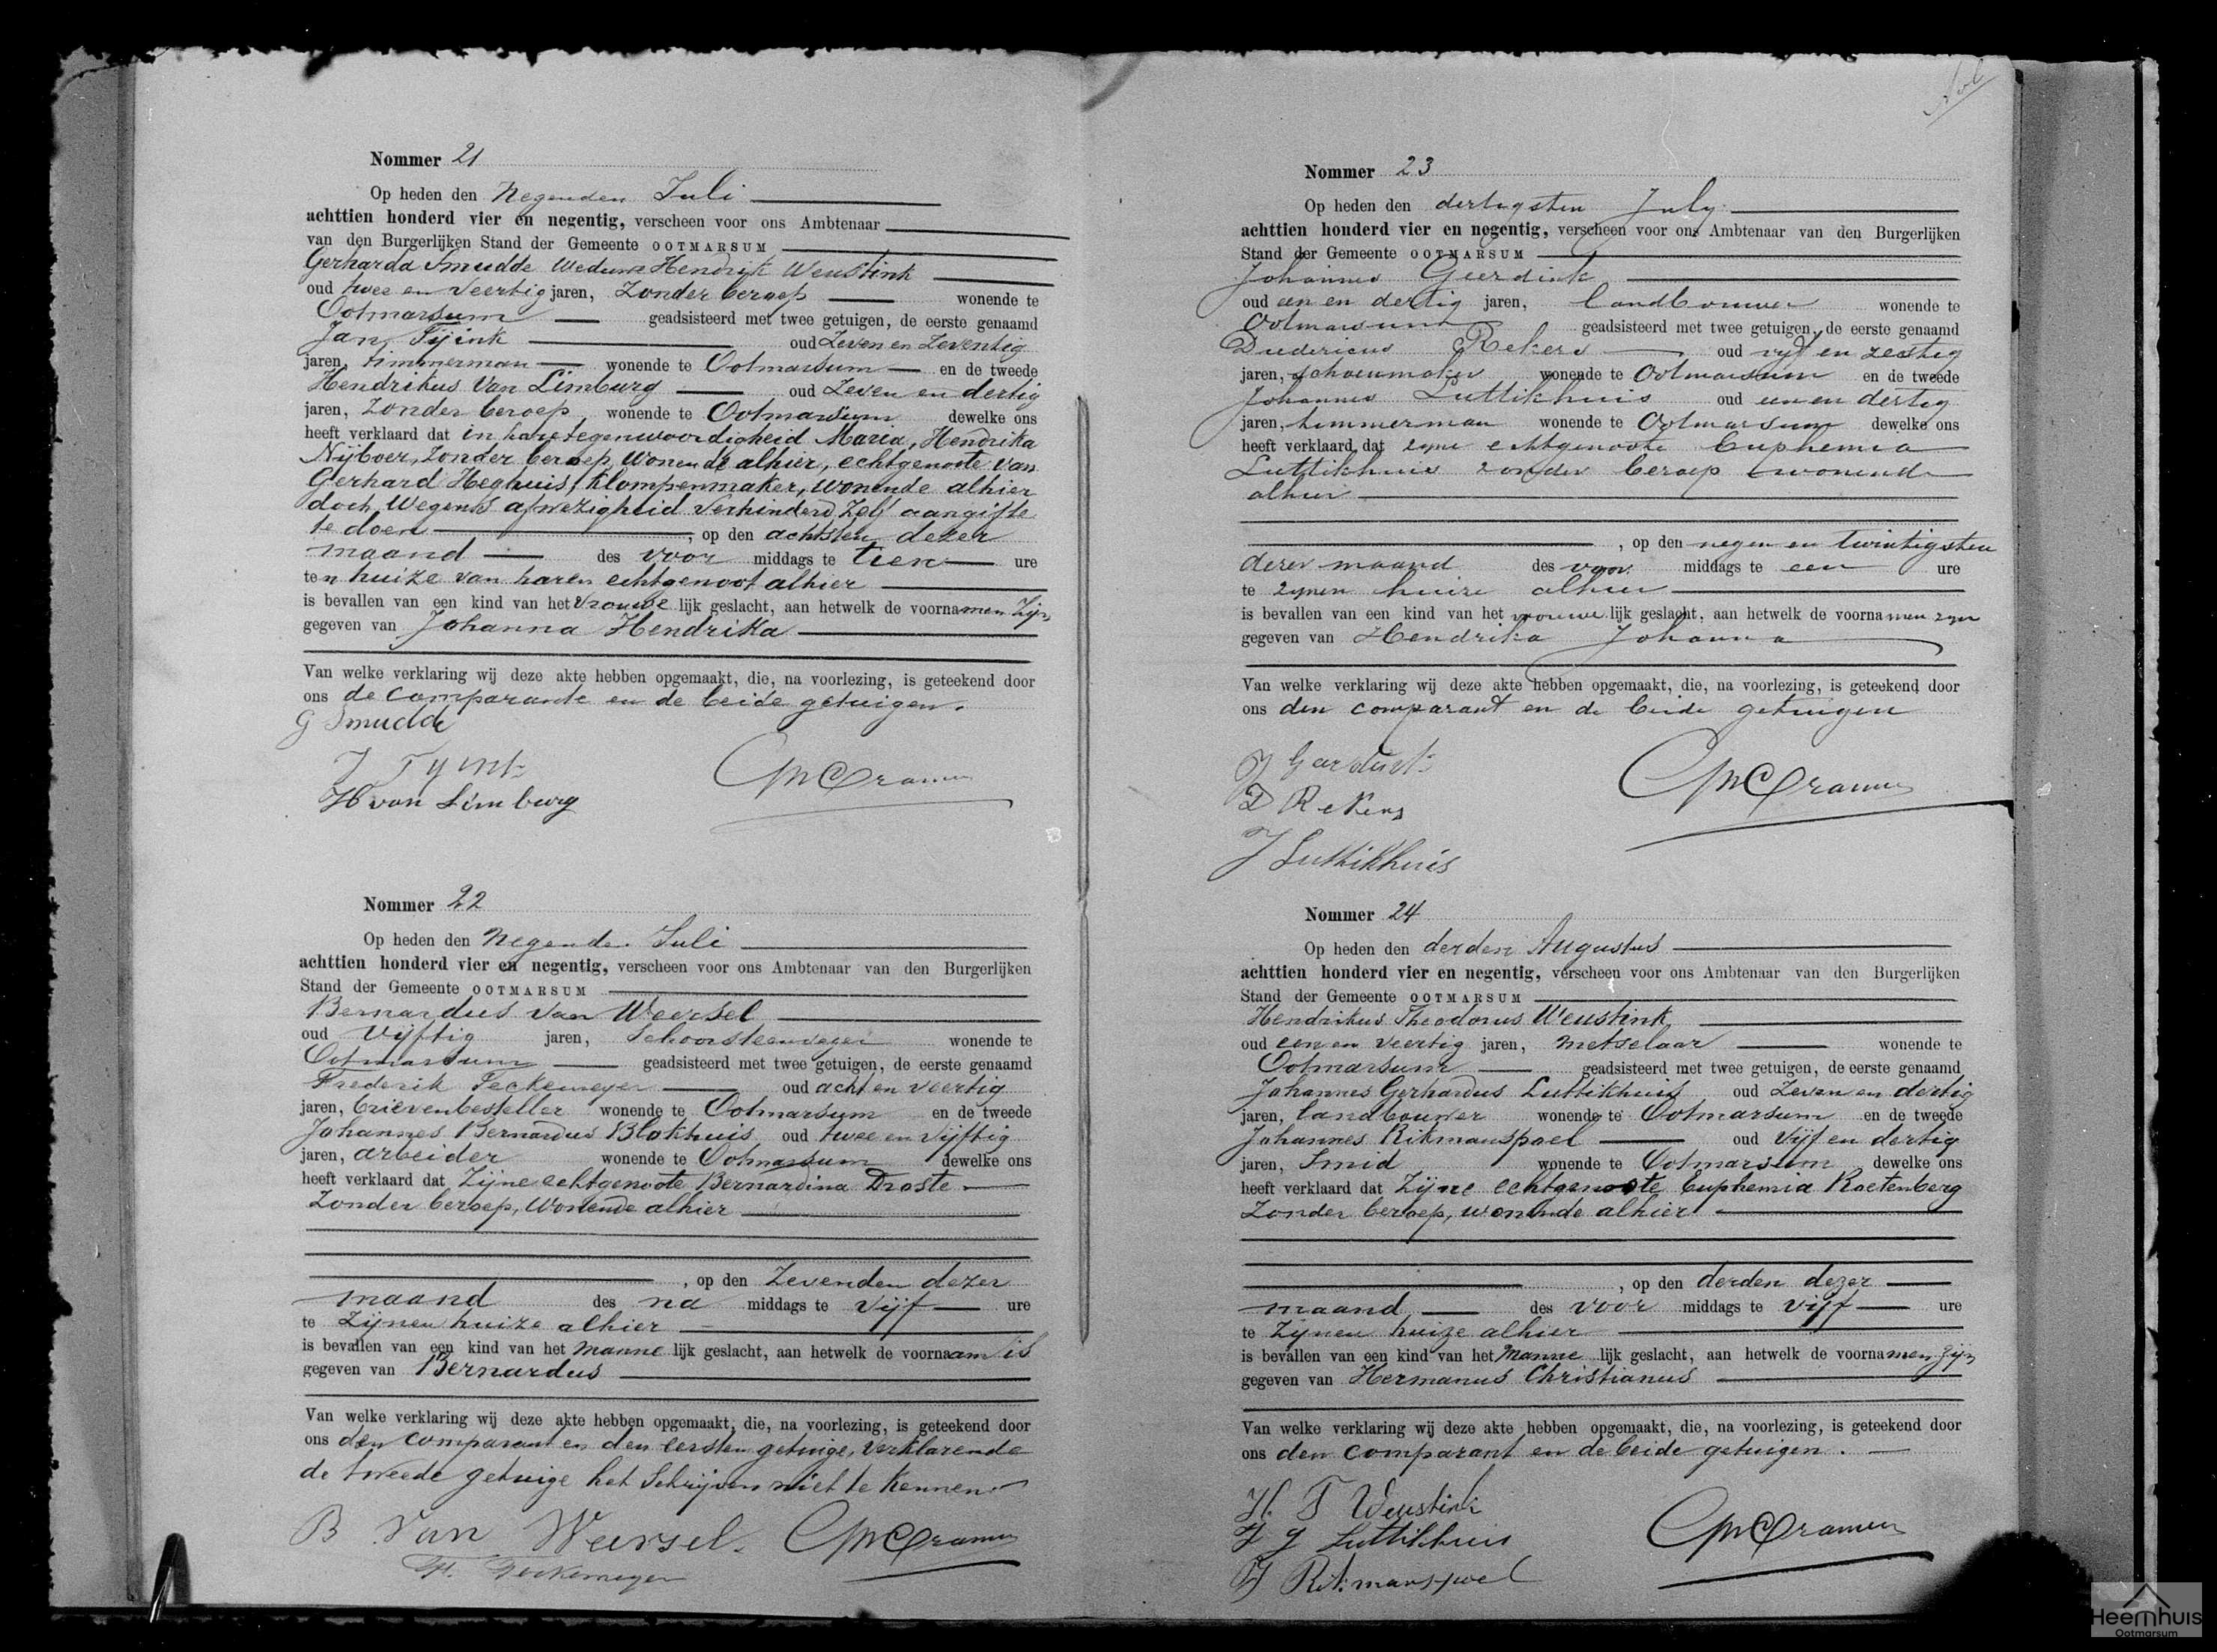 Nommer 21
Op heden den Negenden Juli
achttien honderd vier en negentig, verscheen voor ons Ambtenaar
van den Burgerlijken Stand der Gemeente OOTMARSUM
Gerharda Smudde Weduwe Hendrik Weustink
oud twee en veertig jaren, Zonder beroep wonende te
Ootmarsum geadsisteerd met twee getuigen, de eerste genaamd
Jan Tijink oud Zeven en Zeventig
jaren, timmerman wonende te Ootmarsum en de tweede
Hendrikus Van Limburg oud Zeven en dertig
jaren, Zonder beroep wonende te Ootmarsum dewelke ons
heeft verklaard dat in hare tegenwoordigheid Maria, Hendrika
Nijboer, Zonder beroep, Wonende alhier, echtgenoote van
Gerhard Heghuis, Klompenmaker, Wonende alhier
doch Wegens afwezigheid Verhinderd Zelf aangifte
te doen, op den achtsten dezer
maand des voor middags te tien ure
ten huize van haren echtgenoot alhier
is bevallen van een kind van het Vrouwe lijk geslacht, aan hetwelk de voornamen Zijn
gegeven van Johanna Hendrika
Van welke verklaring wij deze akte hebben opgemaakt, die, na voorlezing, is geteekend door
ons de comparante en de beide getuigen.
G Smudde
J Tyink
H van Limburg
Cramer
Nommer 22
Op heden den Negende Juli
achttien honderd vier en negentig, verscheen voor ons Ambtenaar van den Burgerlijken
Stand der Gemeente OOTMARSUM
Bernardus van Weersel
oud Vijftig jaren, Schoorsteenveger wonende te
Ootmarsum geadsisteerd met twee getuigen, de eerste genaamd
Frederik Teckemeyer oud acht en veertig
jaren, brievenbesteller wonende te Ootmarsum en de tweede
Johannes Bernardus Blokhuis oud twee en Vijftig
jaren, arbeider wonende te Ootmarsum dewelke ons
heeft verklaard dat Zijne echtgenoote Bernardina Droste
Zonder beroep, Wonende alhier
, op den Zevenden dezer
maand des na middags te Vijf ure
te Zijnen huize alhier
is bevallen van een kind van het Manne lijk geslacht, aan hetwelk de voornaam is
gegeven van Bernardus
Van welke verklaring wij deze akte hebben opgemaakt, die, na voorlezing, is geteekend door
ons den comparant en den eersten getuige, verklarende
de tweede getuige het Schrijven niet te Kennen
B van Weersel. Cramer
Fr. Teckemeyer
Nommer 23
Op heden den dertigsten July
achttien honderd vier en negentig, verscheen voor ons Ambtenaar van den Burgerlijken
Stand der Gemeente OOTMARSUM
Johannes Geerdink
oud een en dertig jaren, landbouwer wonende te
Ootmarsum geadsisteerd met twee getuigen, de eerste genaamd
Diedericus Rekers oud vijf en zestig
jaren, schoenmaker wonende te Ootmarsum en de tweede
Johannes Luttikhuis oud een en dertig
jaren, timmerman wonende te Ootmarsum dewelke ons
heeft verklaard dat zijne echtgenoote Euphemia
Luttikhuis zonder beroep wonende
alhier
, op den negen en twintigsten
dezer maand des voor middags te een ure
te zijnen huize alhier
is bevallen van een kind van het vrouwe lijk geslacht, aan hetwelk de voornamen zijn
gegeven van Hendrika Johanna
Van welke verklaring wij deze akte hebben opgemaakt, die, na voorlezing, is geteekend door
ons den comparant en de beide getuigen
J Geerdink
D Rekers
J Luttikhuis
Cramer
Nommer 24
Op heden den derden Augustus
achttien honderd vier en negentig, verscheen voor ons Ambtenaar van den Burgerlijken
Stand der Gemeente OOTMARSUM
Hendrikus Theodorus Weustink
oud een en veertig jaren, metselaar wonende te
Ootmarsum geadsisteerd met twee getuigen, de eerste genaamd
Johannes Gerhardus Luttikhuis oud Zeven en dertig
jaren, landbouwer wonende te Ootmarsum en de tweede
Johannes Rikmanspoel oud Vijf en dertig
jaren, Smid wonende te Ootmarsum dewelke ons
heeft verklaard dat Zijne echtgenoote Euphemia Roetenberg
Zonder beroep, wonende alhier
, op den derden dezer
maand des voor middags te vijf ure
te Zijnen huize alhier
is bevallen van een kind van het Manne lijk geslacht, aan hetwelk de voornamen Zijn
gegeven van Hermanus Christianus
Van welke verklaring wij deze akte hebben opgemaakt, die, na voorlezing, is geteekend door
ons den comparant en de beide getuigen.
H. T Weustink
J G Luttikhuis
J Rikmanspoel
Cramer
Heemhuis
Ootmarsum